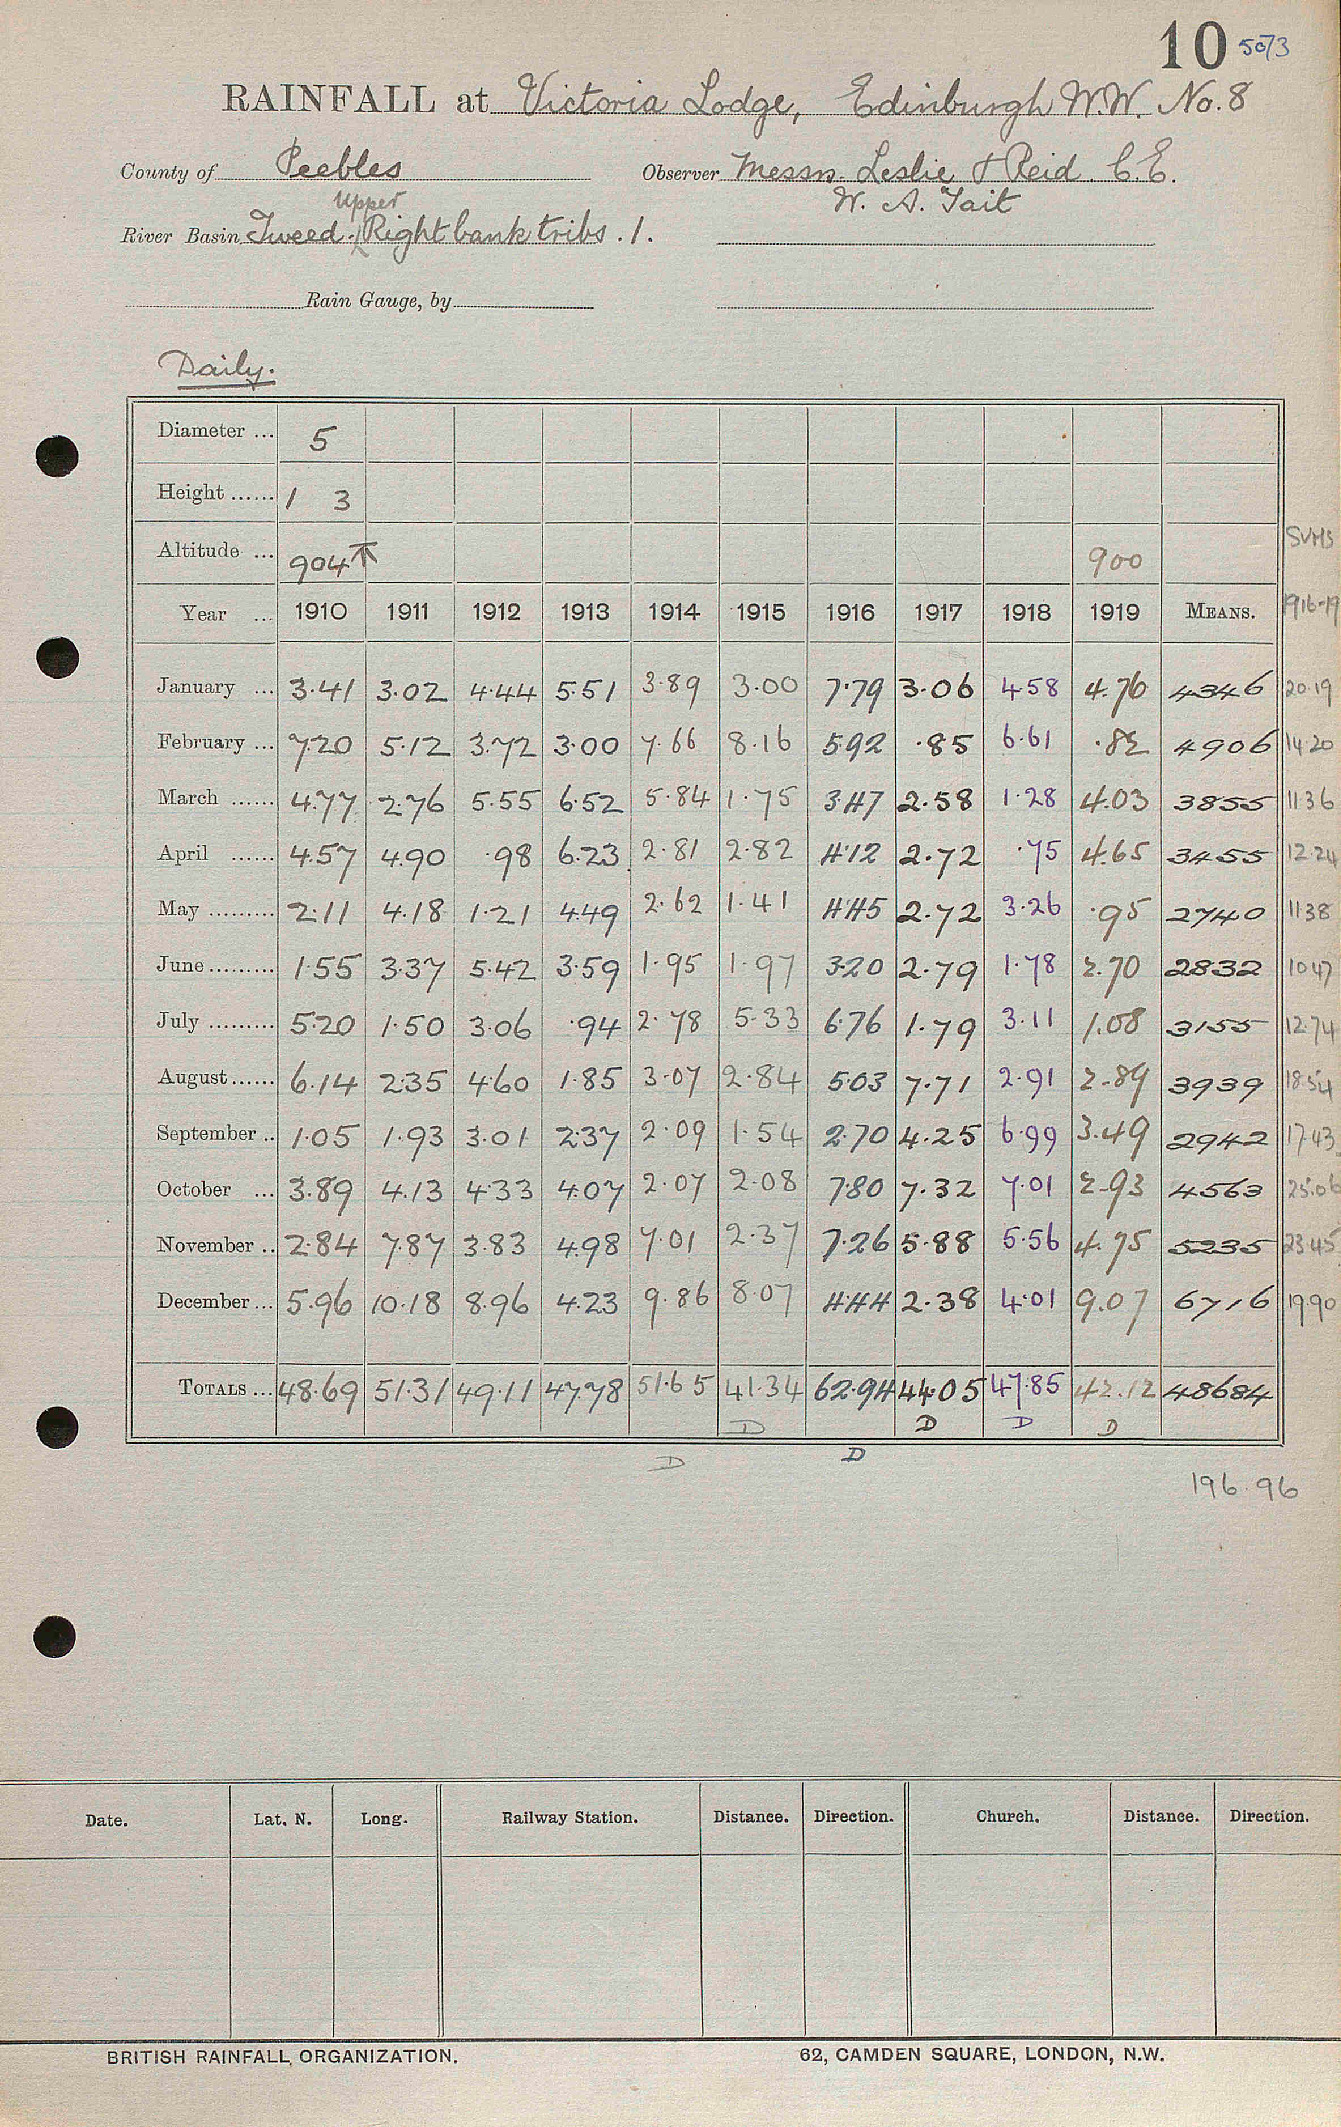 10 5073
RAINFALL at Victoria Lodge, Edinburgh W.W. No. 8
County of Peebles Observer Messrs. Leslie & Reid. C.E.
W. A. Tait
Upper
River Basin Tweed - Right bank tribs. 1.
Rain Gauge, by
Daily.
Diameter ... 5
Height ...... 1 3
Altitude ... 904 900 SUMS
Year ... 1910 1911 1912 1913 1914 1915 1916 1917 1918 1919 MEANS. 1916-19
January ... 3.41 3.02 4.44 5.51 3.89 3.00 7.79 3.06 4.58 4.76 4346 20.19
February ... 7.20 5.12 3.72 3.00 7.66 8.16 5.92 .85 6.61 .82 4906 14.20
March ...... 4.77 2.76 5.55 6.52 5.84 1.75 3.47 2.58 1.28 4.03 3855 11.36
April ...... 4.57 4.90 .98 6.23 2.81 2.82 4.12 2.72 .75 4.65 3455 12.24
May ......... 2.11 4.18 1.21 4.49 2.62 1.41 4.45 2.72 3.26 .95 2740 11.38
June ......... 1.55 3.37 5.42 3.59 1.95 1.97 3.20 2.79 1.78 2.70 2832 10.47
July ......... 5.20 1.50 3.06 .94 2.78 5.33 6.76 1.79 3.11 1.08 3155 12.74
August ...... 6.14 2.35 4.60 1.85 3.07 2.84 5.03 7.71 2.91 2.89 3939 18.54
September .. 1.05 1.93 3.01 2.37 2.09 1.54 2.70 4.25 6.99 3.49 2942 17.43
October ... 3.89 4.13 4.33 4.07 2.07 2.08 7.80 7.32 7.01 2.93 4563 25.06
November .. 2.84 7.87 3.83 4.98 7.01 2.37 7.26 5.88 5.56 4.75 5235 23.45
December ... 5.96 10.18 8.96 4.23 9.86 8.07 4.44 2.38 4.01 9.07 6716 19.90
TOTALS ... 48.69 51.31 49.11 47.78 51.65 41.34 62.94 44.05 47.85 42.12 48684
D D D D
D D
196.96
Date. Lat. N. Long. Railway Station. Distance. Direction. Church. Distance. Direction.
BRITISH RAINFALL ORGANIZATION. 62, CAMDEN SQUARE, LONDON, N.W.